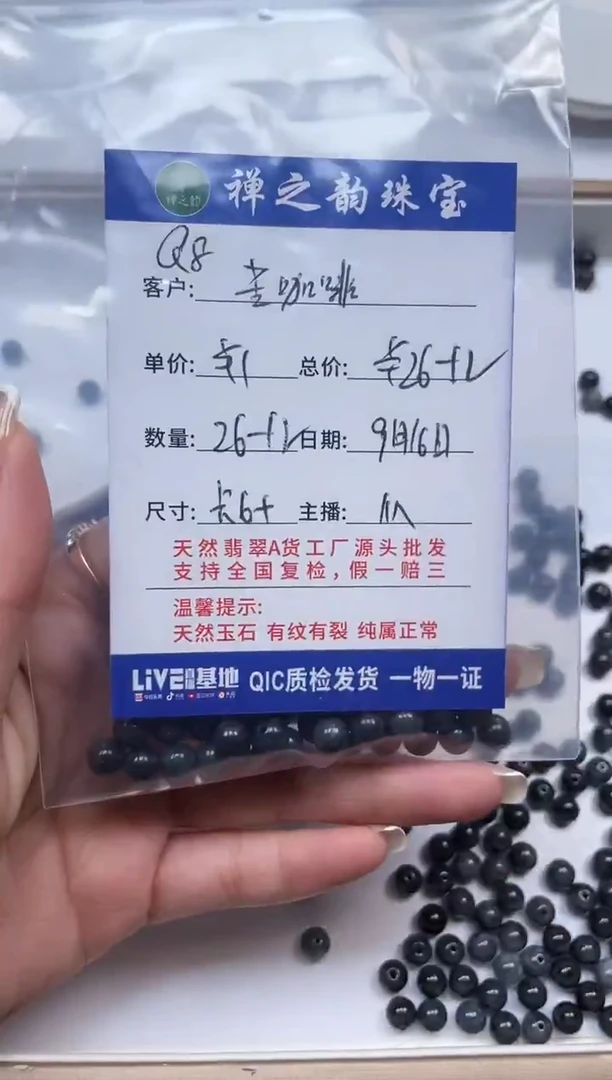 禅之韵珠宝
Q8
客户: 咖啡
单价: 总价:
数量: 26 日期: 9月16日
尺寸: 6+ 主播:
天然翡翠A货工厂源头批发
支持全国复检,假一赔三
温馨提示:
天然玉石 有纹有裂 纯属正常
LiVE直播基地 QIC质检发货 一物一证